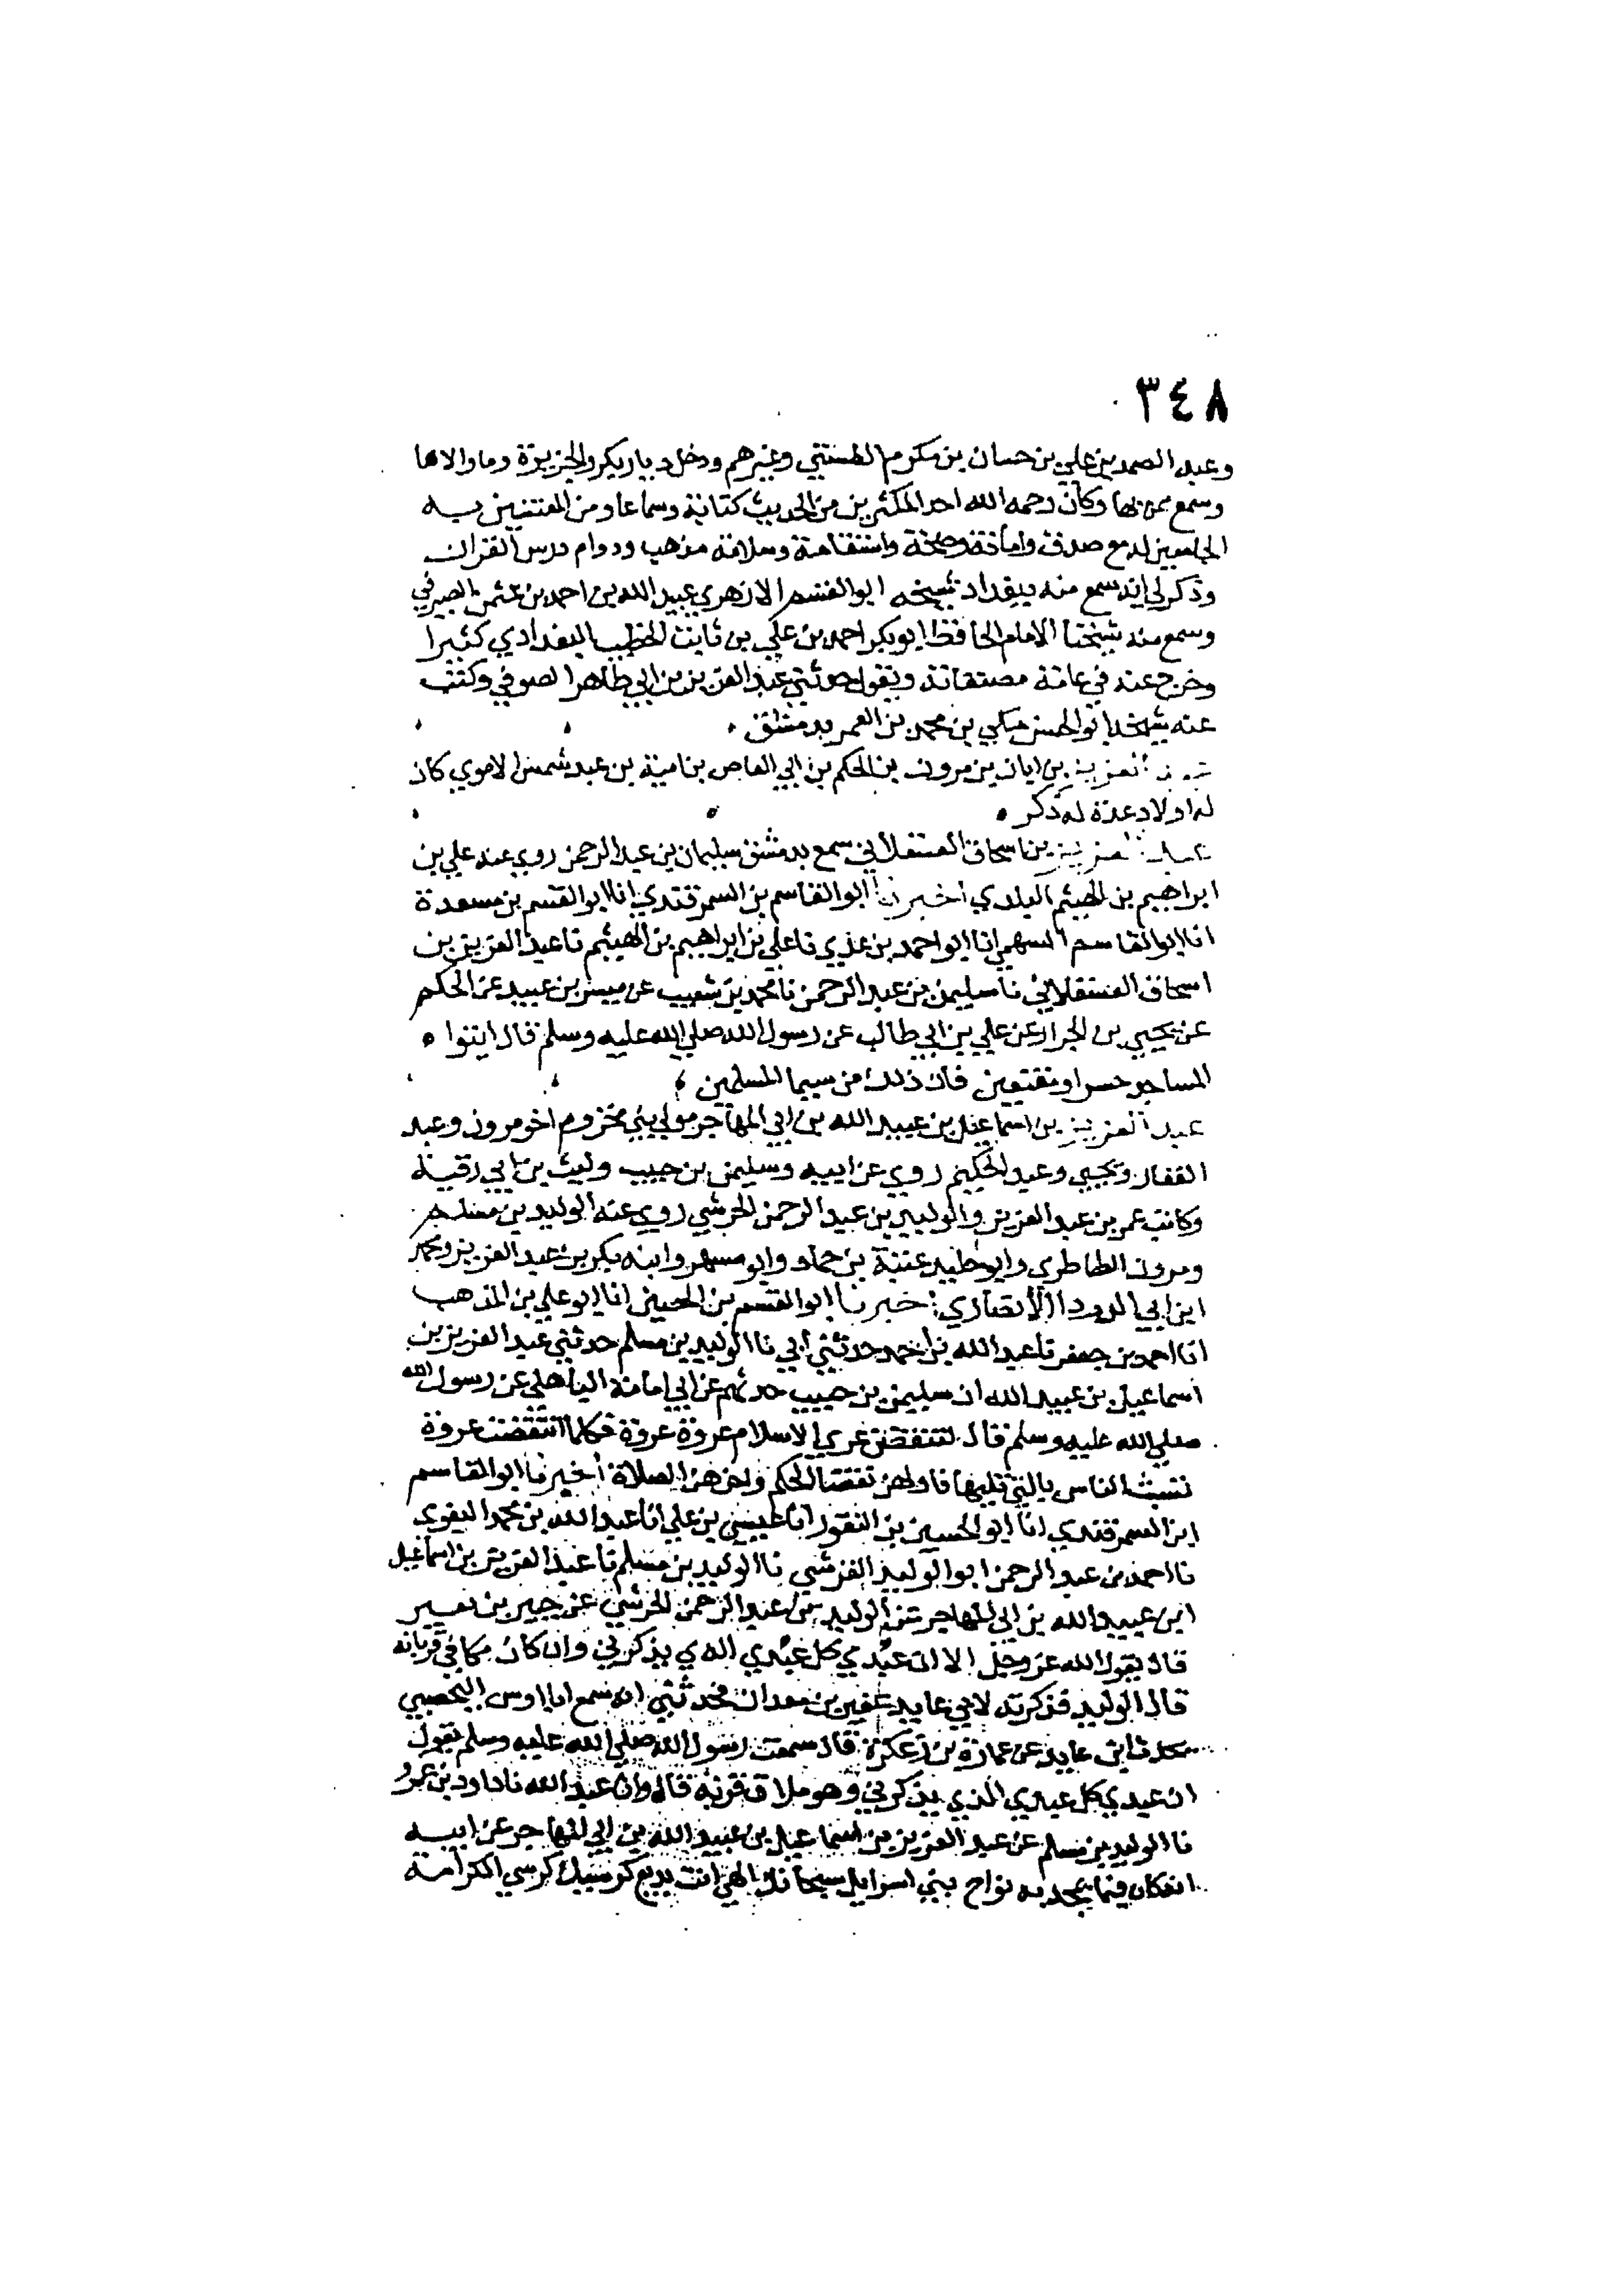 ٣٤٨
وعبد الصمد بن علي بن حسان بن مكرم الطستي وغيرهم ودخل ديار بكر والجزيرة وما والاها
وسمع ممن بها وكان رحمه الله احد المكثرين من الحديث كتابة وسماعا ومن المعتنين به
الجامعين له مع صدق وامانة وصحة واستقامة وسلامة مذهب ودوام درس القران
وذكر لي انه سمع منه ببغداد شيخه ابو القسم الازهري عبيد الله بن احمد بن عثمن الصيرفي
وسمع منه شيخنا الامام الحافظ ابو بكر احمد بن علي بن ثابت الخطيب البغدادي كثيرا
وخرج عنه في عامة مصنفاته ويقول حدثني عبد العزيز بن ابي طاهر الصوفي وكتب
عنه شيخنا ابو الحسن مكي بن محمد بن الغمر بدمشق
العزيز بن ابان بن مرون بن الحكم بن ابي العاص بن امية بن عبد شمس الاموي كان
له اولاد عدة له ذكر
عبد العزيز بن اسحاق العسقلاني سمع بدمشق سليمان بن عبد الرحمن روي عنه علي بن
ابراهيم بن الهيثم البلدي اخبرنا ابو القاسم بن السمرقندي انا ابو القسم بن مسعدة
انا ابو القاسم السهمي انا ابو احمد بن عدي نا علي بن ابراهيم بن الهيثم نا عبد العزيز بن
اسحاق العسقلاني نا سليمن بن عبد الرحمن نا محمد بن شعيب عن ميسر بن عبيد عن الحكم
عن يحيي بن الجزار عن علي بن ابي طالب عن رسول الله صلي الله عليه وسلم قال ايتوا
المساجد حسرا ومقنعين فان ذلك من سيما المسلمين
عبد العزيز بن اسماعيل بن عبيد الله بن ابي المهاجر مولي بني مخزوم اخو مرون وعبد
الغفار ويحيي وعبد الحكيم روي عن ابيه وسليمن بن حبيب وليث بن ابي رقية
وكاتب عمر بن عبد العزيز والوليد بن عبد الرحمن الجرشي روي عنه الوليد بن مسلم
ومرون الطاطري وابو خليد عتبة بن حماد وابو مسهر وابنه بكر بن عبد العزيز ومحمد
ابن ابي الدرداء الانصاري اخبرنا ابو القسم بن الحصين انا ابو علي بن المذهب
انا احمد بن جعفر نا عبد الله بن احمد حدثني ابي نا الوليد بن مسلم حدثني عبد العزيز بن
اسماعيل بن عبيد الله ان سليمن بن حبيب حدثهم عن ابي امامة الباهلي عن رسول الله
صلي الله عليه وسلم قال لتنقضن عري الاسلام عروة عروة فكلما انتقضت عروة
تشبث الناس بالتي تليها فاولهن نقضا الحكم واخرهن الصلاة اخبرنا ابو القاسم
ابن السمرقندي انا ابو الحسين بن النقور انا عيسي بن علي انا عبد الله بن محمد البغوي
نا احمد بن عبد الرحمن ابو الوليد القرشي نا الوليد بن مسلم نا عبد العزيز بن اسماعيل
ابن عبيد الله بن ابي المهاجر عن الوليد بن عبد الرحمن الجرشي عن جبير بن نفير
قال يقول الله عز وجل الا ان عبدي كل عبدي الذي يذكرني وان كان مكافي قرنه
قال الوليد فذكرته لابي عايد عفير بن معدان فحدثني انه سمع ابا دوس اليحصبي
ابن عايد عن عمارة بن زعكرة قال سمعت رسول الله صلي الله عليه وسلم يقول
ان عبدي كل عبدي الذي يذكرني وهو ملاق قرنه قال وانا عبد الله نا داود بن عمرو
نا الوليد بن مسلم عن عبد العزيز بن اسماعيل بن عبيد الله بن ابي المهاجر عن ابيه
انه كان فيما يمجد به نواح بني اسرايل سبحانك الهي انت بديع كرسيك كرسي الكرامة